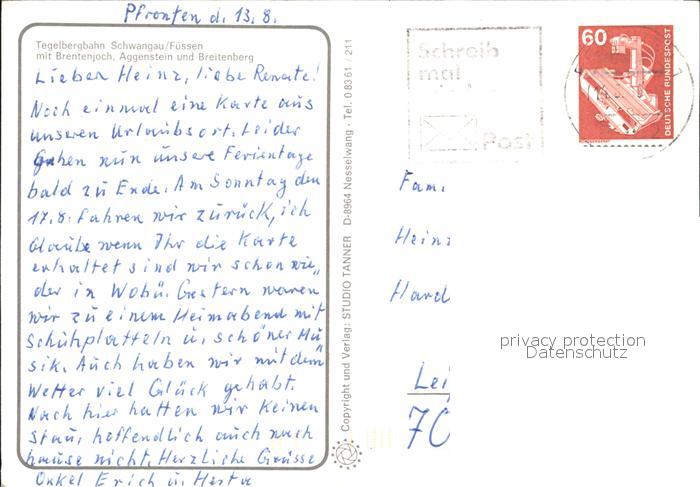 Pfronten d. 13.8.
Tegelbergbahn Schwangau/Füssen
mit Brentenjoch, Aggenstein und Breitenberg
Lieber Heinz, liebe Renate!
Noch einmal eine Karte aus
unseren Urlaubsort. Leider
gehen nun unsere Ferientage
bald zu Ende. Am Sonntag den
17.8. fahren wir zurück, ich
glaube wenn Ihr die Karte
erhaltet sind wir schon wie„
der in Wobü. Gestern waren
wir zu einem Heimabend mit
Schuhplatteln u. schöner Mu„
sik. Auch haben wir mit dem
Wetter viel Glück gehabt.
Nach hier hatten wir keinen
Stau, hoffendlich auch nach
hause nicht. Herzliche Grüsse
Onkel Erich u. Herta
Copyright und Verlag: STUDIO TANNER D-8964 Nesselwang · Tel. 0 83 61 / 211
Schreib
mal
Post
60
DEUTSCHE BUNDESPOST
Fam.
Heinz
Hard
Lei
70
privacy protection
Datenschutz